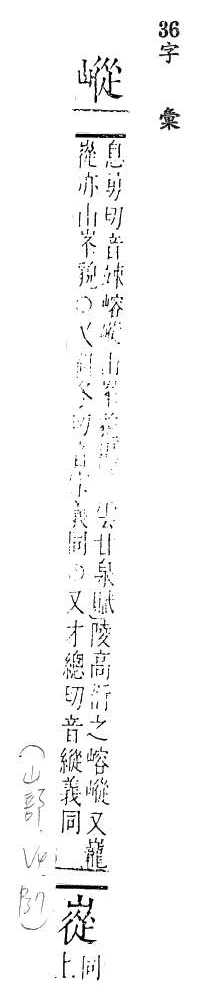 36字彙
嵷
息勇切音竦嵱嵷山峯貌雲甘泉賦陵高衍之嵱嵷又巃
嵷亦山峯貌○又切音義同○又才總切音縱義同
嵸
同
上
(山部. V4. P37)